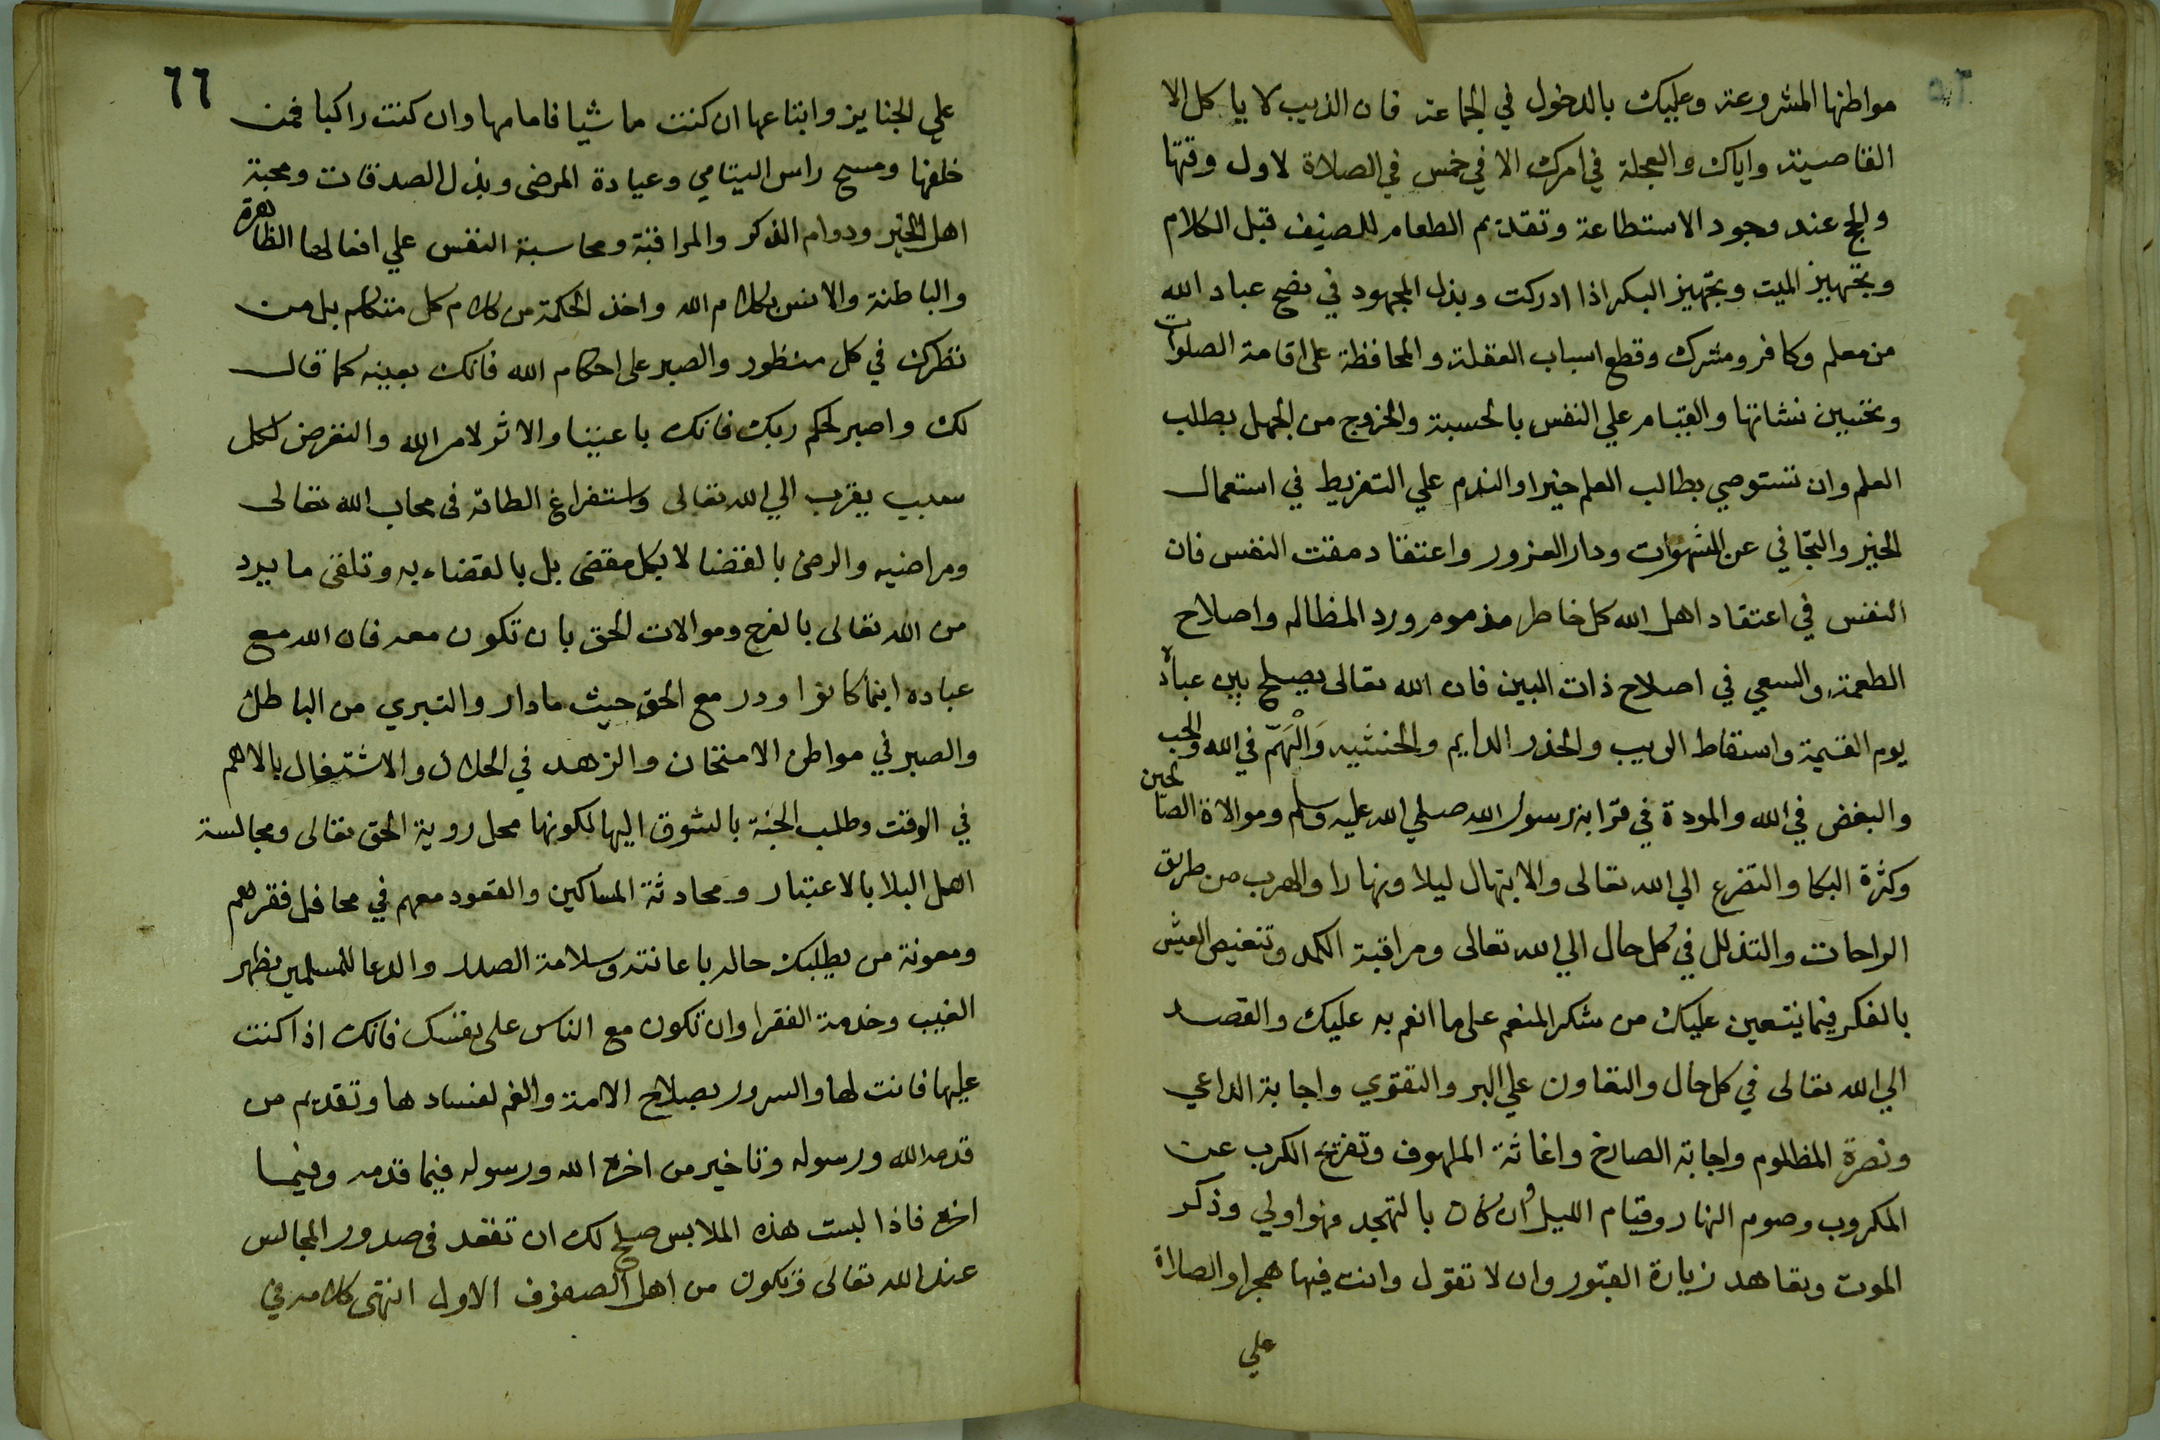 مواطنها المشروعة وعليك بالدخول في الجماعة فان الذيب لا ياكل الا
القاصية واياك والعجلة في امرك الا في خمس في الصلاة لاول وقتها
والحج عند وجود الاستطاعة وتقديم الطعام للضيف قبل الكلام
وتجهيز الميت وتجهيز البكر اذا ادركت وبذل المجهود في نصح عباد الله
من معلم وكافر ومشرك وقطع اسباب الغفلة والمحافظة على اقامة الصلوات
وتحسين نشاتها والقيام علي النفس بالحسبة والخروج من الجهل بطلب
العلم وان تستوصي بطالب العلم خيرا والندم علي التفريط في استعمال
الخير والتجافي عن الشهوات ودار الغرور واعتقاد مقت النفس فان
النفس في اعتقاد اهل الله كل خاطر مذموم ورد المظالم واصلاح
الطعمة والسعي في اصلاح ذات البين فان الله تعالى يصلح بين عباده
يوم القيمة واسقاط الريب والحذر الدايم والخشيه وَالْهَمّ في الله والحب
والبغض في الله والمودة في قرابة رسول الله صلي الله عليه وسلم وموالاة الصالحين
وكثرة البكا والتضرع الي الله تعالى والابتهال ليلا ونهارا والهرب من طريق
الراحات والتذلل في كل حال الي الله تعالى ومراقبة الكمد وتنغيص العيش
بالفكر فيما يتعين عليك من شكر المنعم على ما انعم به عليك والقصد
الي الله تعالى في كل حال والتعاون علي البر والتقوي واجابة الداعي
ونصرة المظلوم واجابة الصارخ واغاثة الملهوف وتفريج الكرب عن
المكروب وصوم النهار وقيام الليل وان كان بالتهجد فهو اولي وذكر
الموت وتعاهد زيارة القبور وان لا تقول وانت فيها هجرا والصلاة
علي
٦٦
علي الجنايز واتباعها ان كنت ماشيا فامامها وان كنت راكبا فمن
خلفها ومسح راس اليتامي وعيادة المرضى وبذل الصدقات ومحبة
اهل الخير ودوام الذكر والمراقبة ومحاسبة النفس علي افعالها الظاهرة
والباطنة والانس بكلام الله واخذ الحكمة من كلام كل متكلم بل من
نظرك في كل منظور والصبر على احكام الله فانك بعينه كما قال
لك واصبر لحكم ربك فانك باعيننا والاثر لامر الله والتعرض لكل
سبب يقرب الي الله تعالى واستفراغ الطاقة في محاب الله تعالى
ومراضيه والرضى بالقضا لا بكل مقضى بل بالقضاء به وتلقى ما يرد
من الله تعالى بالفرح وموالات الحق بان تكون معه فان الله مع
عباده اينما كانوا ودر مع الحق حيث ما دار والتبري من الباطل
والصبر في مواطن الامتحان والزهد في الحلال والاشتغال بالاهم
في الوقت وطلب الجنة بالشوق اليها لكونها محل روية الحق تعالى ومجالسة
اهل البلا بالاعتبار ومحادثة المساكين والقعود معهم في محافل فقرهم
ومعونة من يطلبك حاله باعانته وسلامة الصدر والدعا للمسلمين بظهر
الغيب وخدمة الفقرا وان تكون مع الناس على نفسك فانك اذا كنت
عليها فانت لها والسرور بصلاح الامة والغم لفسادها وتقديم من
قدمه الله ورسوله وتاخير من اخره الله ورسوله فيما قدمه وفيما
اخره فاذا لبست هذه الملابس صلح لك ان تقعد في صدور المجالس
عند الله تعالى وتكون من اهل الصفوف الاول انتهى كلامه في